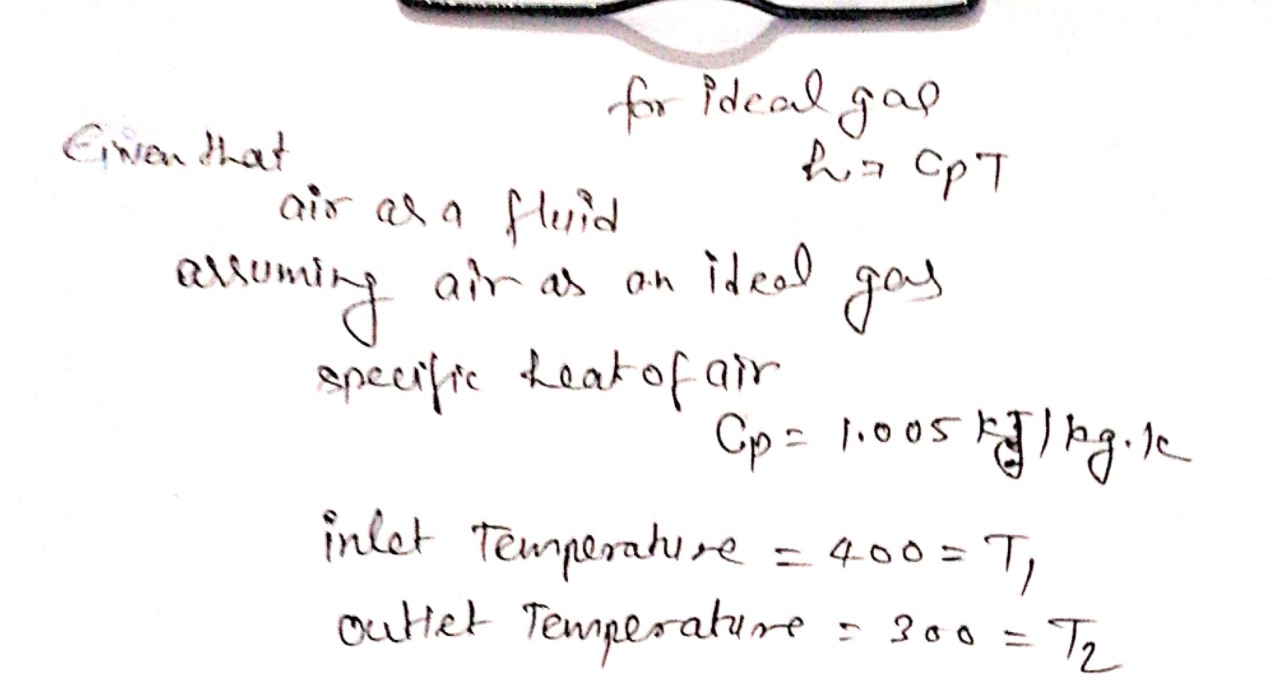 for ideal gas
Given that
h = CpT
air as a fluid
assuming air as an ideal gas
specific heat of air
Cp = 1.005 kJ/kg.k
inlet Temperature = 400 = T1
outlet Temperature = 300 = T2